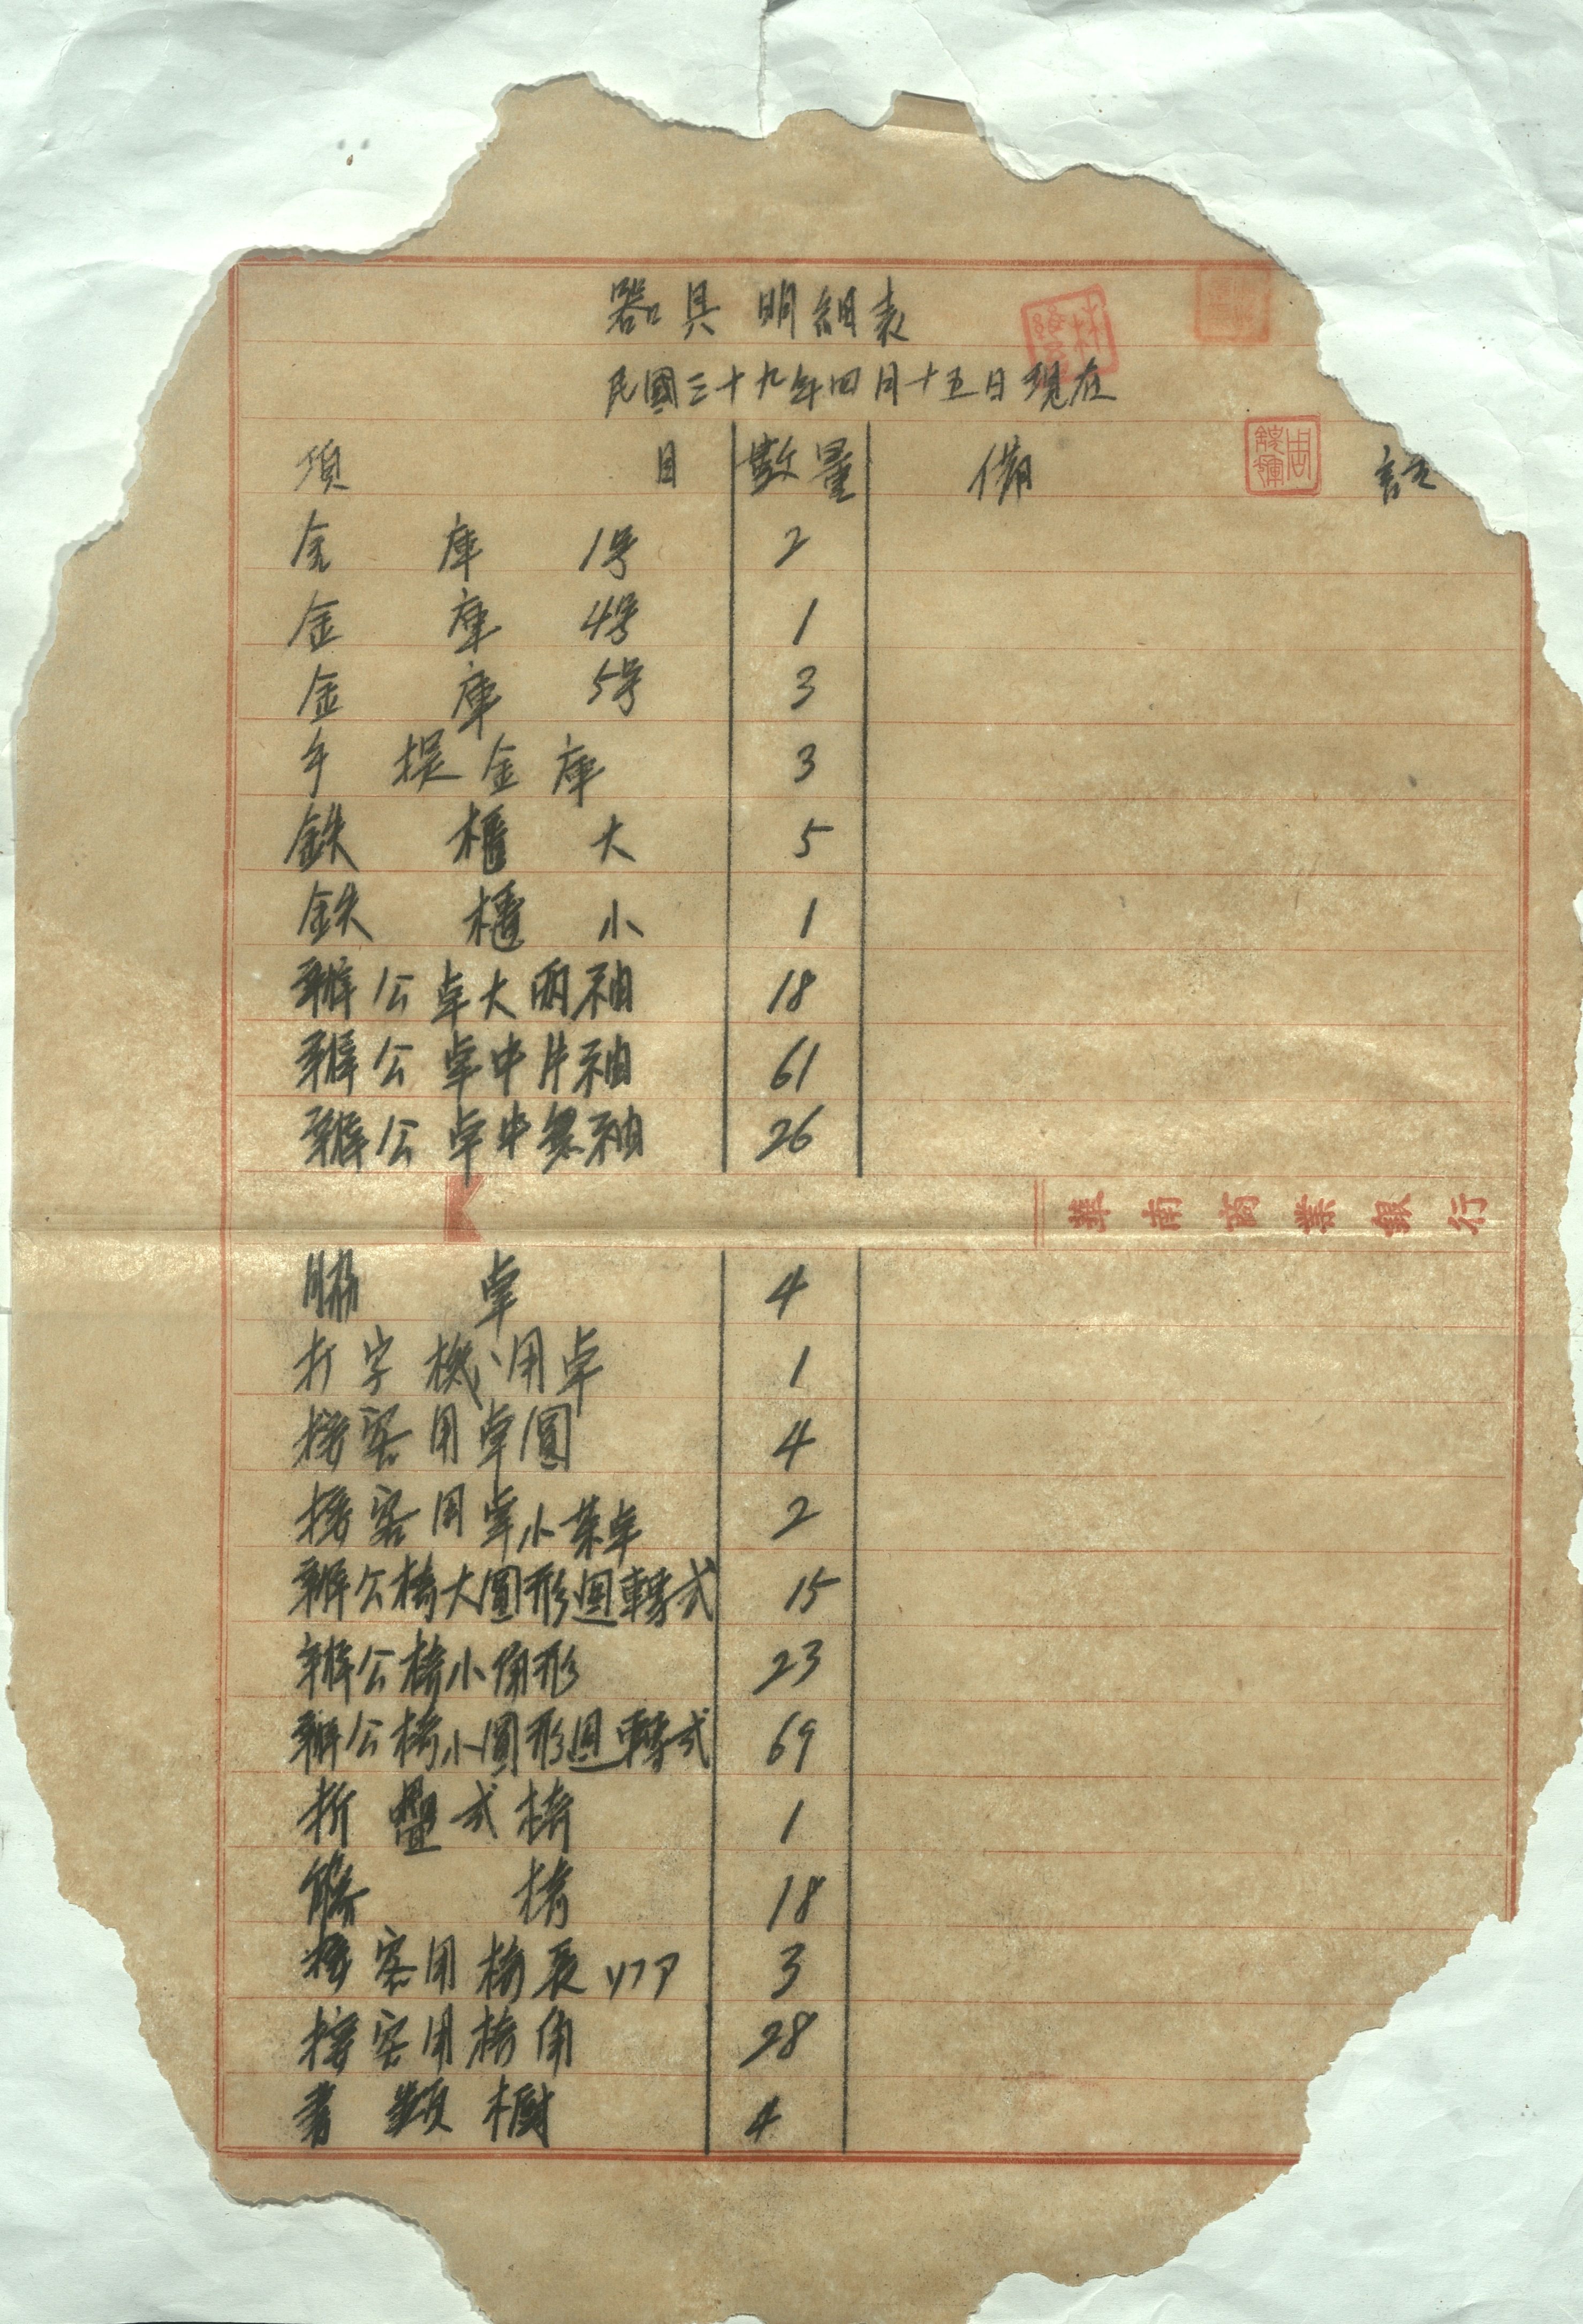 器具明細表
民國三十九年四月十五日現在
項目 數量 備註
周
金庫 1号 2
金庫 4号 1
金庫 5号 3
手提金庫 3
鉄櫃 大 5
鉄櫃 小 1
辦公卓大両袖 18
辦公卓中片袖 61
辦公卓中無袖 26
華南商業銀行
脇卓 4
打字機用卓 1
接客用卓圓 4
接客用卓小茶卓 2
辦公椅大圓形迴轉式 15
辦公椅小角形 23
辦公椅小圓形迴轉式 69
折疊式椅 1
籐椅 18
接客用椅長ソファ 3
接客用椅角 28
書類櫥 4